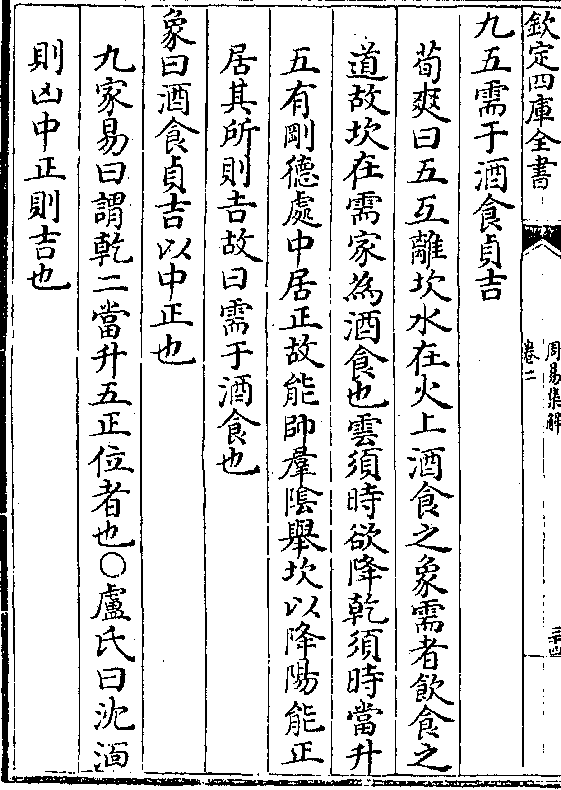 欽定四庫全書
周易集解
卷二
九五需于酒食貞吉
荀爽曰五互離坎水在火上酒食之象需者飲食之
道故坎在需家為酒食也雲須時欲降乾須時當升
五有剛德處中居正故能帥羣陰舉坎以降陽能正
居其所則吉故曰需于酒食也
象曰酒食貞吉以中正也
九家易曰謂乾二當升五正位者也○盧氏曰沈湎
則凶中正則吉也